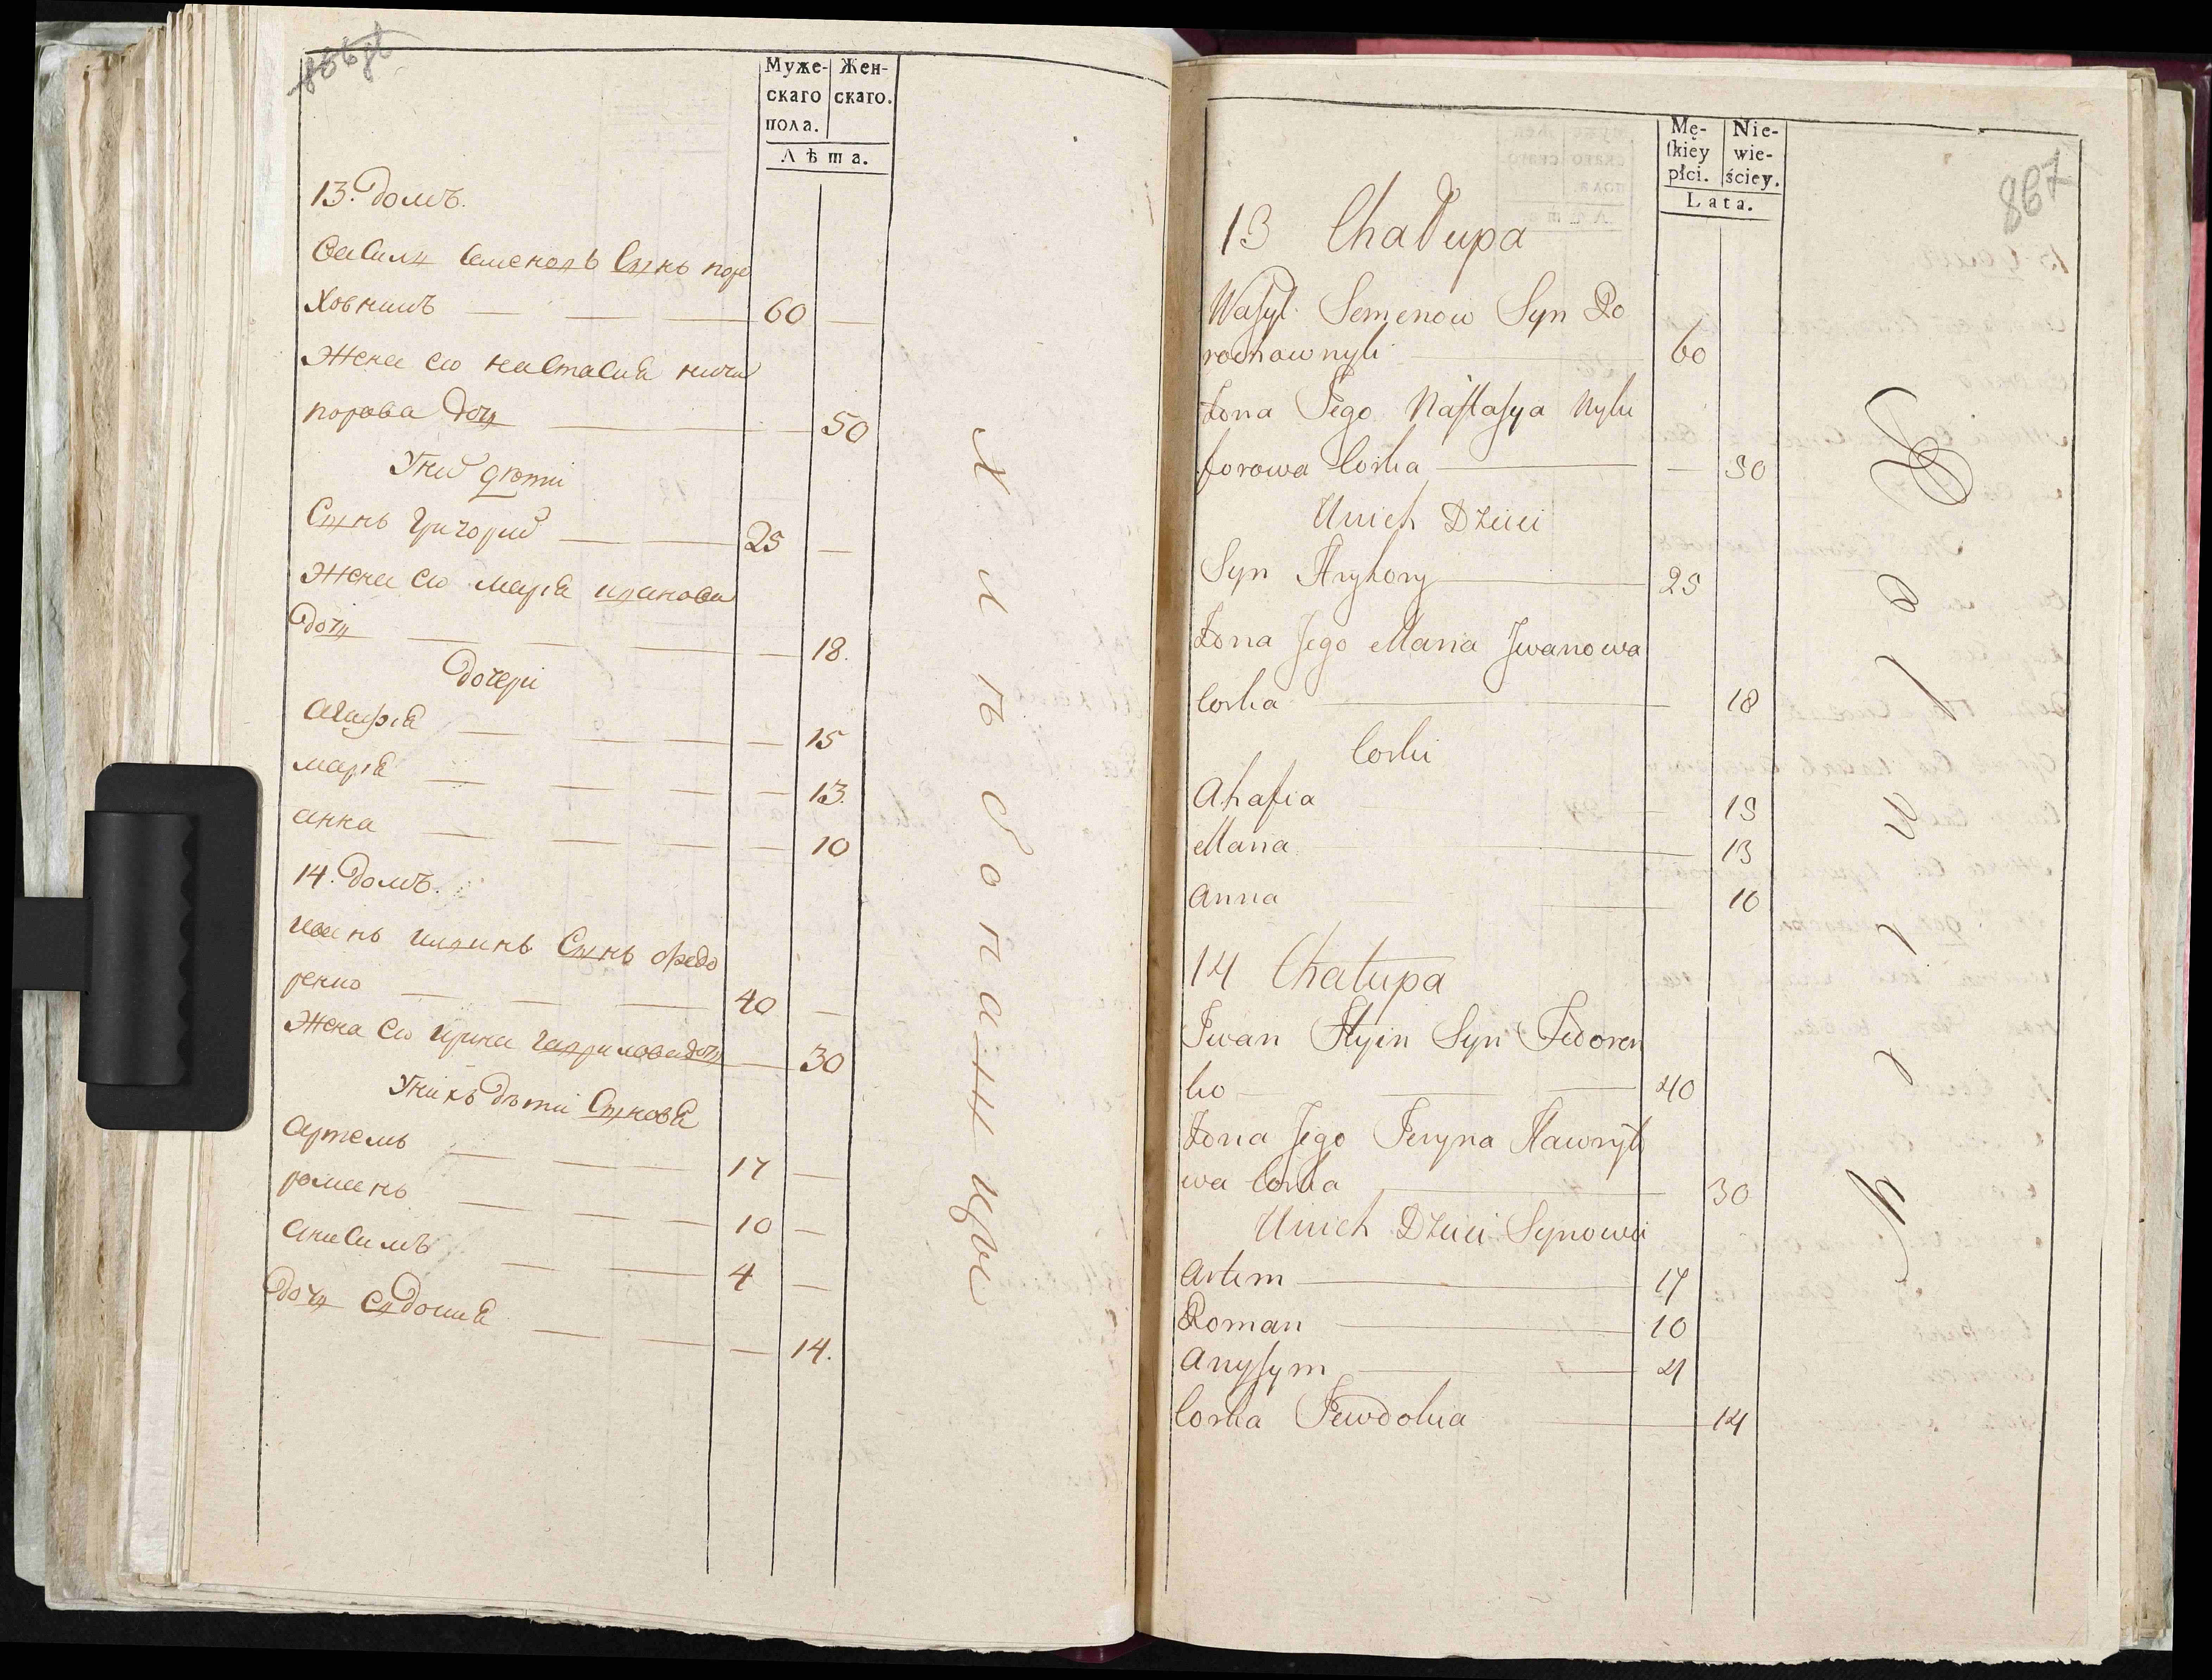 Муже-
скаго
пола.
Жен-
скаго.
Лѣта.
13. Домъ.
Василь Семеновъ Сынъ поро
ховникъ 60
Жена его настасия ники
порова дочь 50
У них дѣти
Сынъ Григорий 25
Жена его мария иванова
дочь 18.
дочери
Агафия 15
мария 13.
анна 10
14. домъ.
иванъ ильинъ Сынъ федо
ренко 40
Жена его ирина гаврилова дочь 30
У нихъ дѣти Сыновя
Артемъ 17
романъ 10
анисимъ 4
дочь евдокия 14.
хлѣбопашцы
867
Mę-
skiey
płci.
Nie-
wie-
ściey.
Lata.
13 Chałupa
Wasyl Semenow Syn Po
rochownyk 60
Żona Jego Nastasya Nyki
forowa Corka 50
U nich Dzieci
Syn Hryhory 25
Żona Jego Maria Jwanowa
Corka 18
Corki
Ahafia 15
Maria 13
Anna 10
14 Chałupa
Jwan Jlyin Syn Fedoren
ko 40
Żona Jego Jeryna Hawryło
wa Corka 30
U nich Dzieci Synowie
Artem 17
Roman 10
Anysym 4
Corka Jewdokia 14